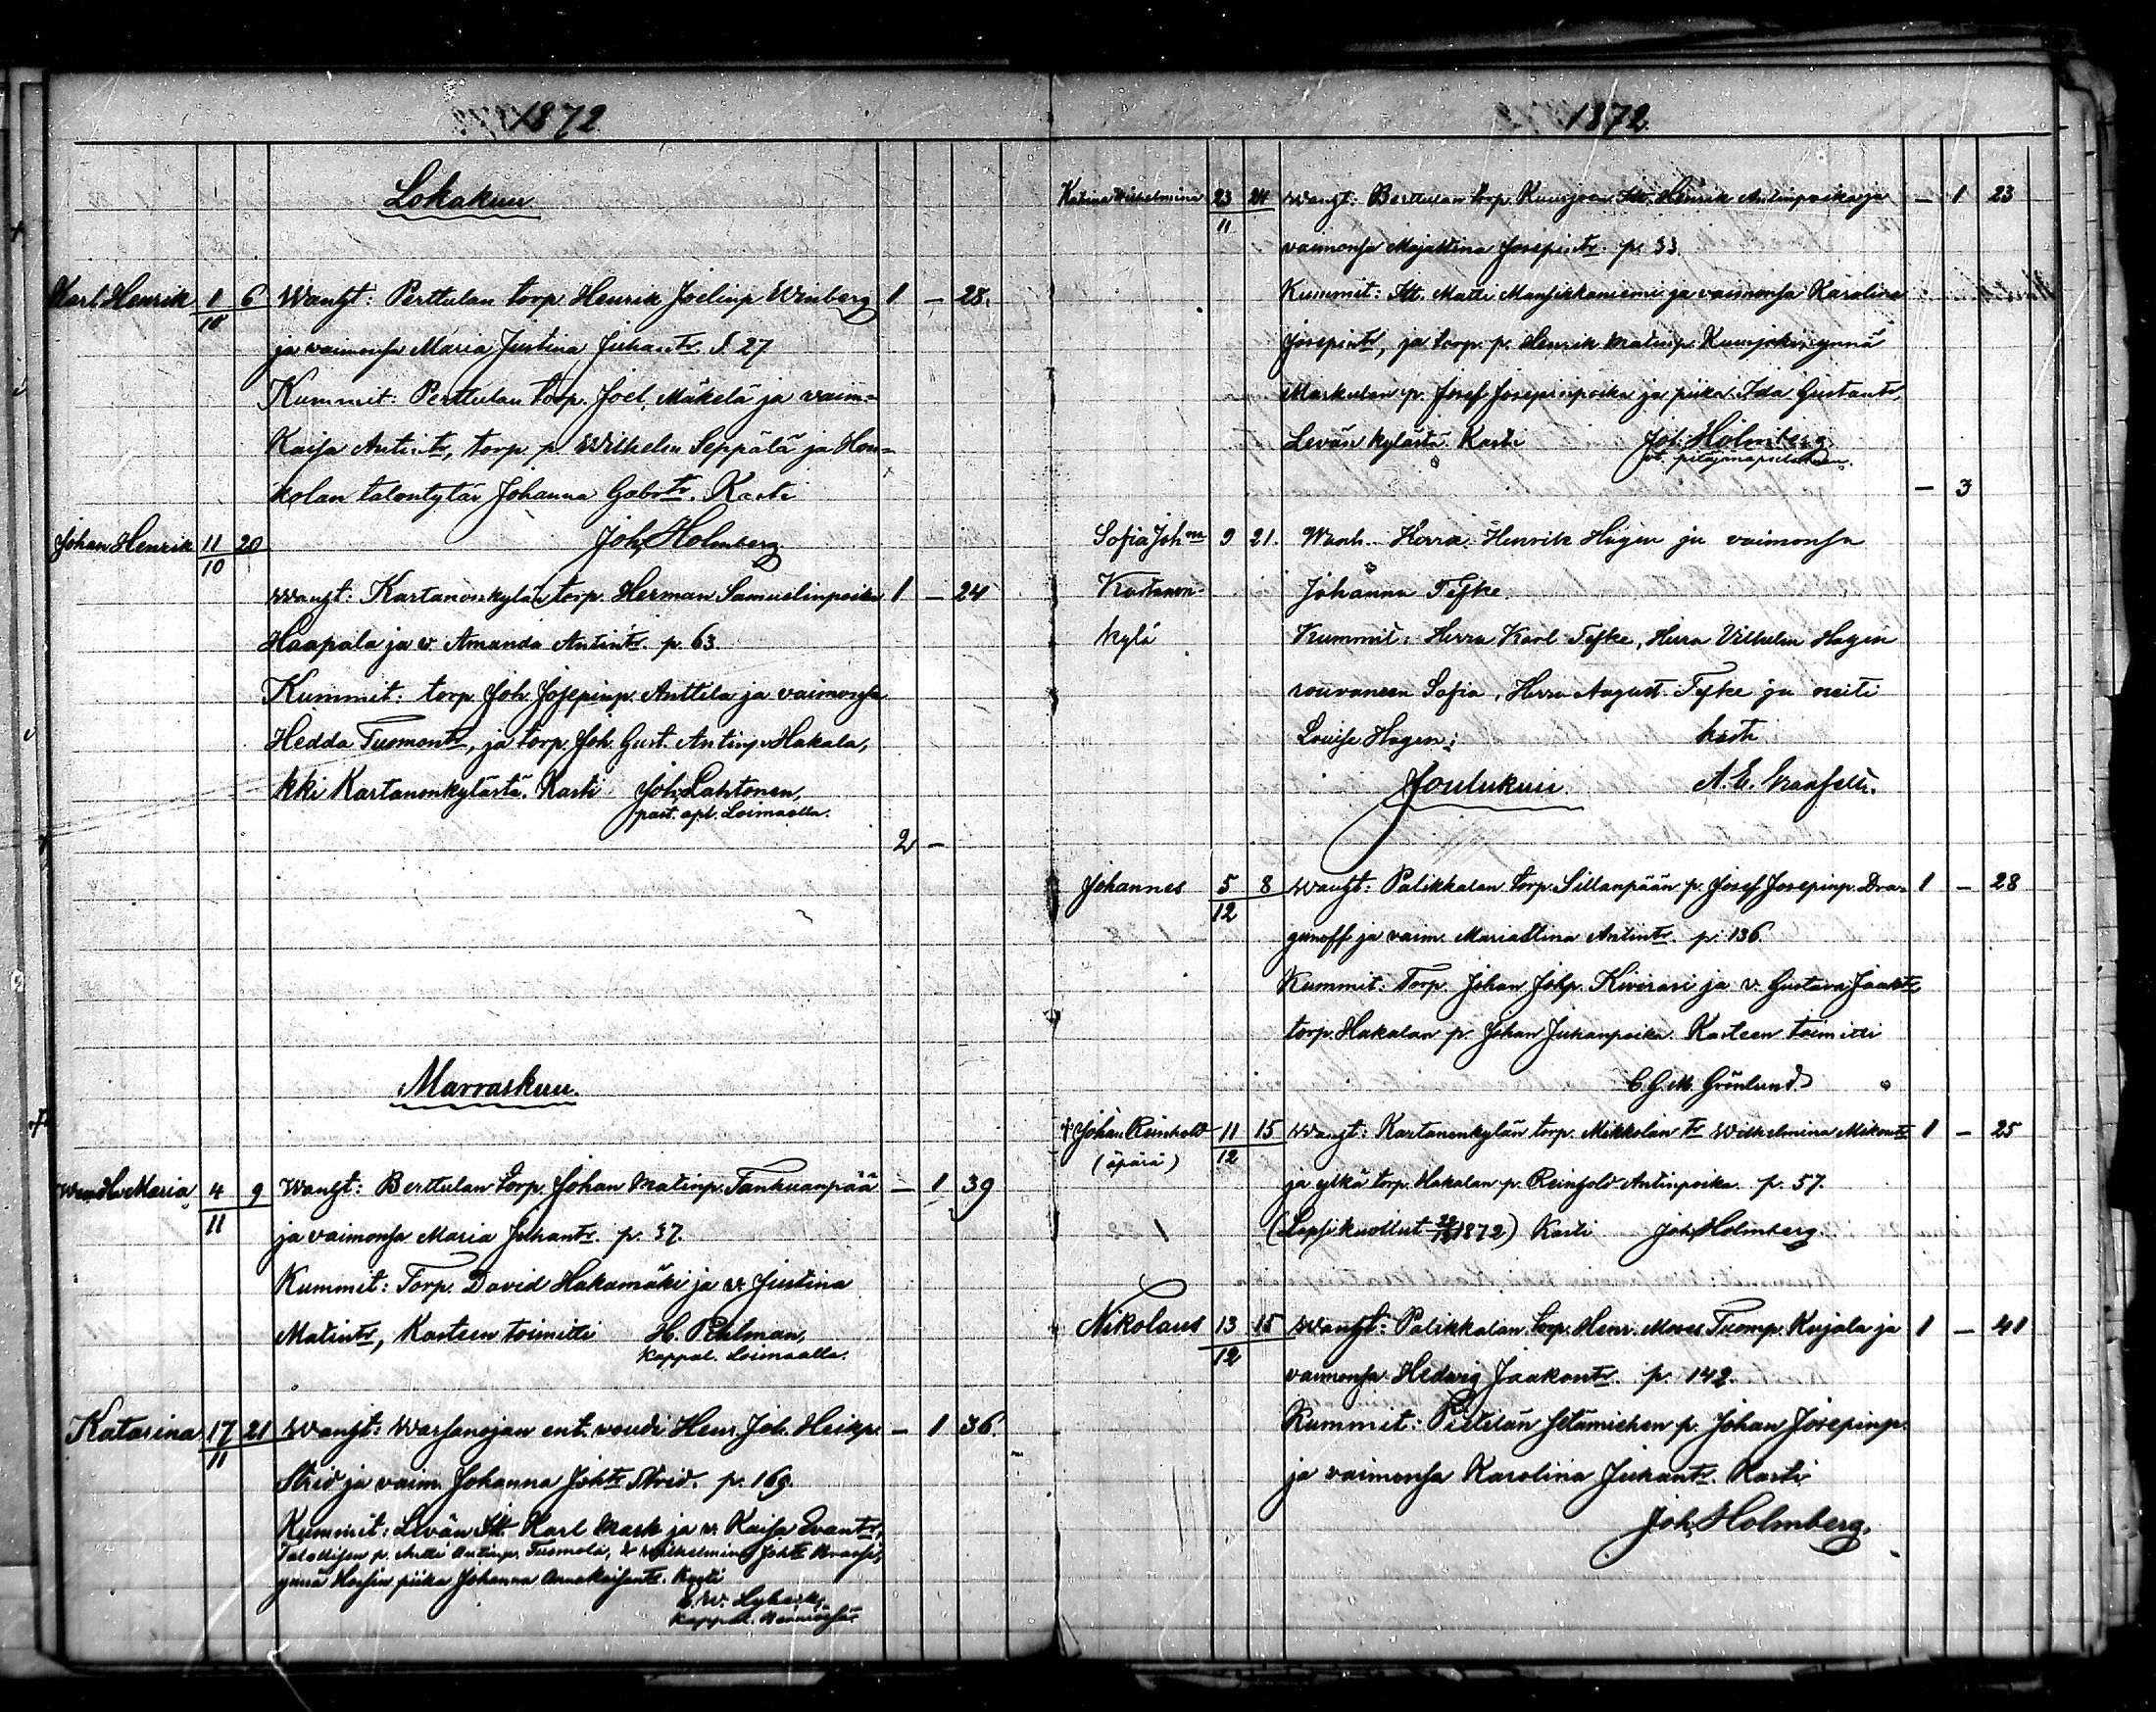 1872
Lokakuu
Karl Henrik 1/10 6 Wanht: Perttulan torp. Henrik Joelinp. Winberg 1 - 28.
ja vaimonsa Maria Justina Juhantr. S. 27
Kummit: Perttulan torp. Joel Mäkelä ja vaim=
Kaisa Antintr, torp. p. Wilhelm Seppälä ja Hon=
kolan talontytär Johanna Gabrtr. Kasti
Johan Henrik 11/10 20 Joh. Holmberg
Wanht: Kartanonkylän torp. Herman Samuelinpoika 1 - 24
Haapala ja v. Amanda Antintr. p. 63.
Kummit: torp. Joh. Josepinp. Anttila ja vaimonsa
Hedda Tuomontr, ja torp. Joh. Gust. Antinp. Hakala,
kki Kartanonkylästä. Kasti Joh. Lahtonen,
past. apl. Loimaalla.
2 -
Marraskuu.
Wendla Maria 4/11 9 Wanht: Berttulan torp. Johan Matinp. Tankuanpää - 1 39
ja vaimonsa Maria Juhantr. p. 37.
Kummit: Torp. David Hakamäki ja v. Justina
Matintr, Kasteen toimitti H.
Kappal. Loimaalla.
Katarina 17/11 21 Wanht: Warsanojan ent. voudi Henr. Joh. Heikp. - 1 36.
Strid ja vaim. Johanna Johtr Strid. p. 169.
Kummit: Levän Karl Mask ja v. Kaisa Evantr,
Talollisen p. Antti Antinp. Tuomola, Wilhelmina Johtr
ynnä piika Johanna Kasti
Kappal.
1872
Katrina Wilhelmina 23/11 24 Wanht: Berttulan torp. Kuusjoen Itt. Henrik Antinpoika ja - 1 23
vaimonsa Majastina Josepintr. p. 33.
Kummit: Itt. Matti Mansikkaniemi ja vaimonsa Karolina
Josepintr, ja torp. p. Henrik Matinp. Kuusjoki, ynnä
Markulan p. Josef Josepinpoika ja piika Ida Gustavtr,
Levän kylästä. Kasti Joh. Holmberg.
vt. pitäjänapulainen.
- 3
Sofia Johna 9 21. Wanh. Herra Henrik Hagen ja vaimonsa
Kartanon- Johanna Tefke.
kylä Kummit: Herra Karl Tefke, Herra Vilhelm Hagen
rouvaneen Sofia, Herra August Tefke ja neiti
Louise Hagen; kasti
Joulukuu A. E.
Johannes 5/12 8 Wanht: Palikkalan torp. Sillanpään p. Josef Josepinp. Dra- 1 - 28
gunoff ja vaim. Mariastina Antintr. p. 136.
Kummit: Torp. Johan Johp. Kivirasi ja v. Gustava Jaaktr,
torp. Hakalan p. Johan Juhanpoika. Kasteen toimitti
C. G. M. Grönlund
† Johan Reinhold 11/12 15 Wanht: Kartanonkylän torp. Mikkolan tr Wilhelmina Mikontr 1 - 25
(äpärä) ja ylkä torp. Hakalan p. Reinhold Antinpoika. p. 57.
(Lapsi kuollut 1872) Kasti Joh. Holmberg.
Nikolaus 13/12 15 Wanht: Palikkalan torp. Henr. Moses Tuomp. Kujala ja 1 - 41
vaimonsa Hedvig Jaakontr. p. 142.
Kummit: Pietilän isännän p. Johan Josepinp.
ja vaimonsa Karolina Juhantr. Kasti
Joh. Holmberg.